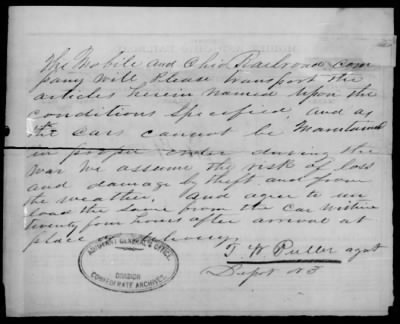 The Mobile and Ohio Railroad com
pany will Please transport the
articles herein named upon the
conditions Specified, and as
the Cars cannot be Maintained
in proper order during the
war We assume the risk of loss
and damage by theft and from
the weather. And agree to un
load the same from the Car within
twenty four hours after arrival at
place of delivery.
ADJUTANT GENERAL'S OFFICE.
DIVISION
CONFEDERATE ARCHIVES.
T W Puller agt
Dept